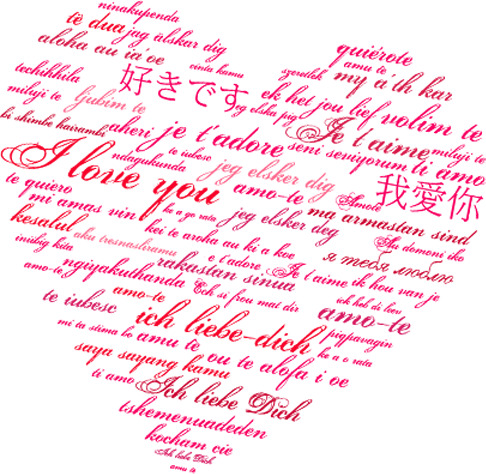 ninakupenda
të dua
jag älskar dig
aloha au ia'oe
quiérote
amu te
techihhila
cinta kamu
szeretlek
my a'th kar
miluji te
ljubim te
好きです
eg elska pig
ek het jou lief
volim te
bi shimbe hairambi
aheri
je t'adore
Je t'aime
miluji te
ndagukunda
te iubesc
seni seviyorum
ti amo
I love you
jeg elsker dig
te quiero
amo-te
Amote
我愛你
mi amas vin
ke a go rata
jeg elsker deg
ma armastan sind
kesalul
kei te aroha au ki a koe
Au domoni iko
inibig kita
aku tresnasliramu
e t'adore
я тебя люблю
amo-te
ngiyakuthanda
rakastan sinua
Je t'aime
ik hou van je
amo-te
Ech si frou mat dir
ich heb di leev
te iubesc
ich liebe-dich
amo-te
mi ta stima bo
amu te
piapavagin
ke a o rata
saya sayang kamu
ou te alofa i oe
ti amo
Ich liebe Dich
tshemenuadeden
kocham cie
Ich liebe Dich
amu te